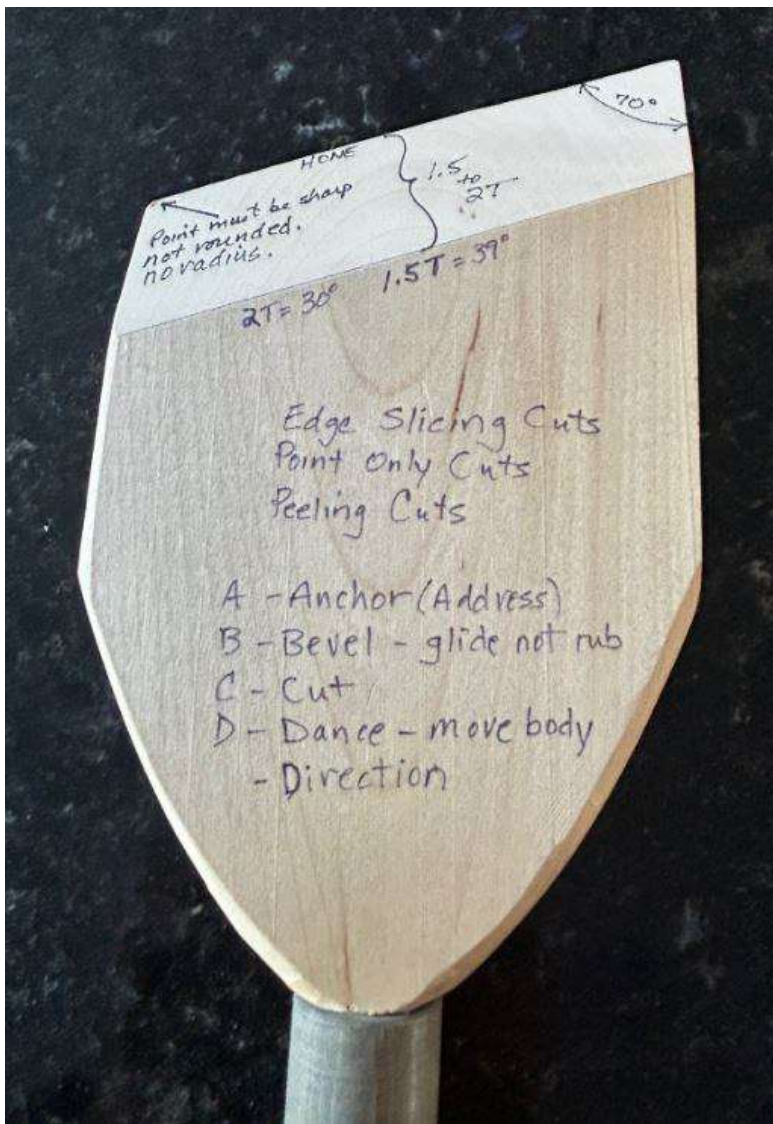 70°
HONE
1.5
to
2T
Point must be sharp
not rounded.
no radius.
2T = 30°
1.5T = 39°
Edge Slicing Cuts
Point Only Cuts
Peeling Cuts
A - Anchor (Address)
B - Bevel - glide not rub
C - Cut
D - Dance - move body
- Direction